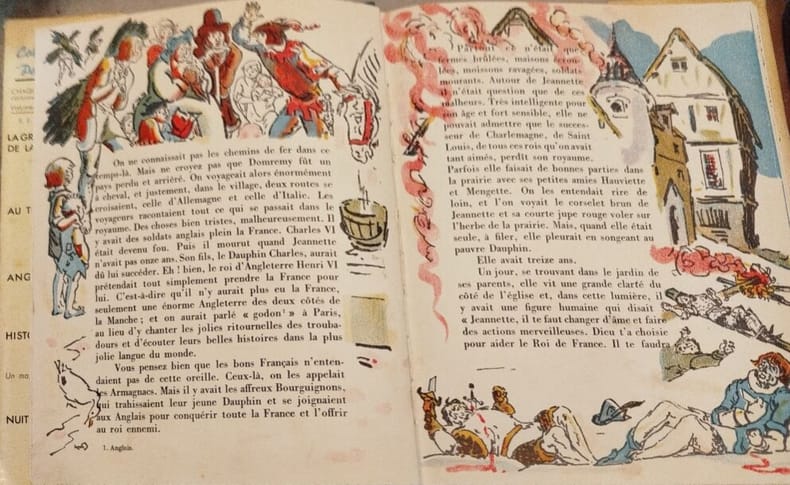 On ne connaissait pas les chemins de fer dans ce
temps-là. Mais ne croyez pas que Domremy fût un
pays perdu et arriéré. On voyageait alors énormément
à cheval, et justement, dans le village, deux routes se
croisaient, celle d'Allemagne et celle d'Italie. Les
voyageurs racontaient tout ce qui se passait dans le
royaume. Des choses bien tristes, malheureusement. Il
y avait des soldats anglais plein la France. Charles VI
était devenu fou. Puis il mourut quand Jeannette
n'avait pas onze ans. Son fils, le Dauphin Charles, aurait
dû lui succéder. Eh ! bien, le roi d'Angleterre Henri VI
prétendait tout simplement prendre la France pour
lui. C'est-à-dire qu'il n'y aurait plus eu la France,
seulement une énorme Angleterre des deux côtés de
la Manche ; et on aurait parlé « godon¹ » à Paris,
au lieu d'y chanter les jolies ritournelles des trouba-
dours et d'écouter leurs belles histoires dans la plus
jolie langue du monde.
Vous pensez bien que les bons Français n'enten-
daient pas de cette oreille. Ceux-là, on les appelait
les Armagnacs. Mais il y avait les affreux Bourguignons,
qui trahissaient leur jeune Dauphin et se joignaient
aux Anglais pour conquérir toute la France et l'offrir
au roi ennemi.
1. Anglais.
Partout ce n'était que
fermes brûlées, maisons écrou-
lées, moissons ravagées, soldats
mourants. Autour de Jeannette
il n'était question que de ces
malheurs. Très intelligente pour
son âge et fort sensible, elle ne
pouvait admettre que le succes-
seur de Charlemagne, de Saint
Louis, de tous ces rois qu'on avait
tant aimés, perdît son royaume.
Parfois elle faisait de bonnes parties dans
la prairie avec ses petites amies Hauviette
et Mengette. On les entendait rire de
loin, et l'on voyait le corselet brun de
Jeannette et sa courte jupe rouge voler sur
l'herbe de la prairie. Mais, quand elle était
seule, à filer, elle pleurait en songeant au
pauvre Dauphin.
Elle avait treize ans.
Un jour, se trouvant dans le jardin de
ses parents, elle vit une grande clarté du
côté de l'église et, dans cette lumière, il
y avait une figure humaine qui disait
« Jeannette, il te faut changer d'âme et faire
des actions merveilleuses. Dieu t'a choisie
pour aider le Roi de France. Il te faudra
LA GR
DE L
AU T
ANG
HIST
Un mo
NUIT